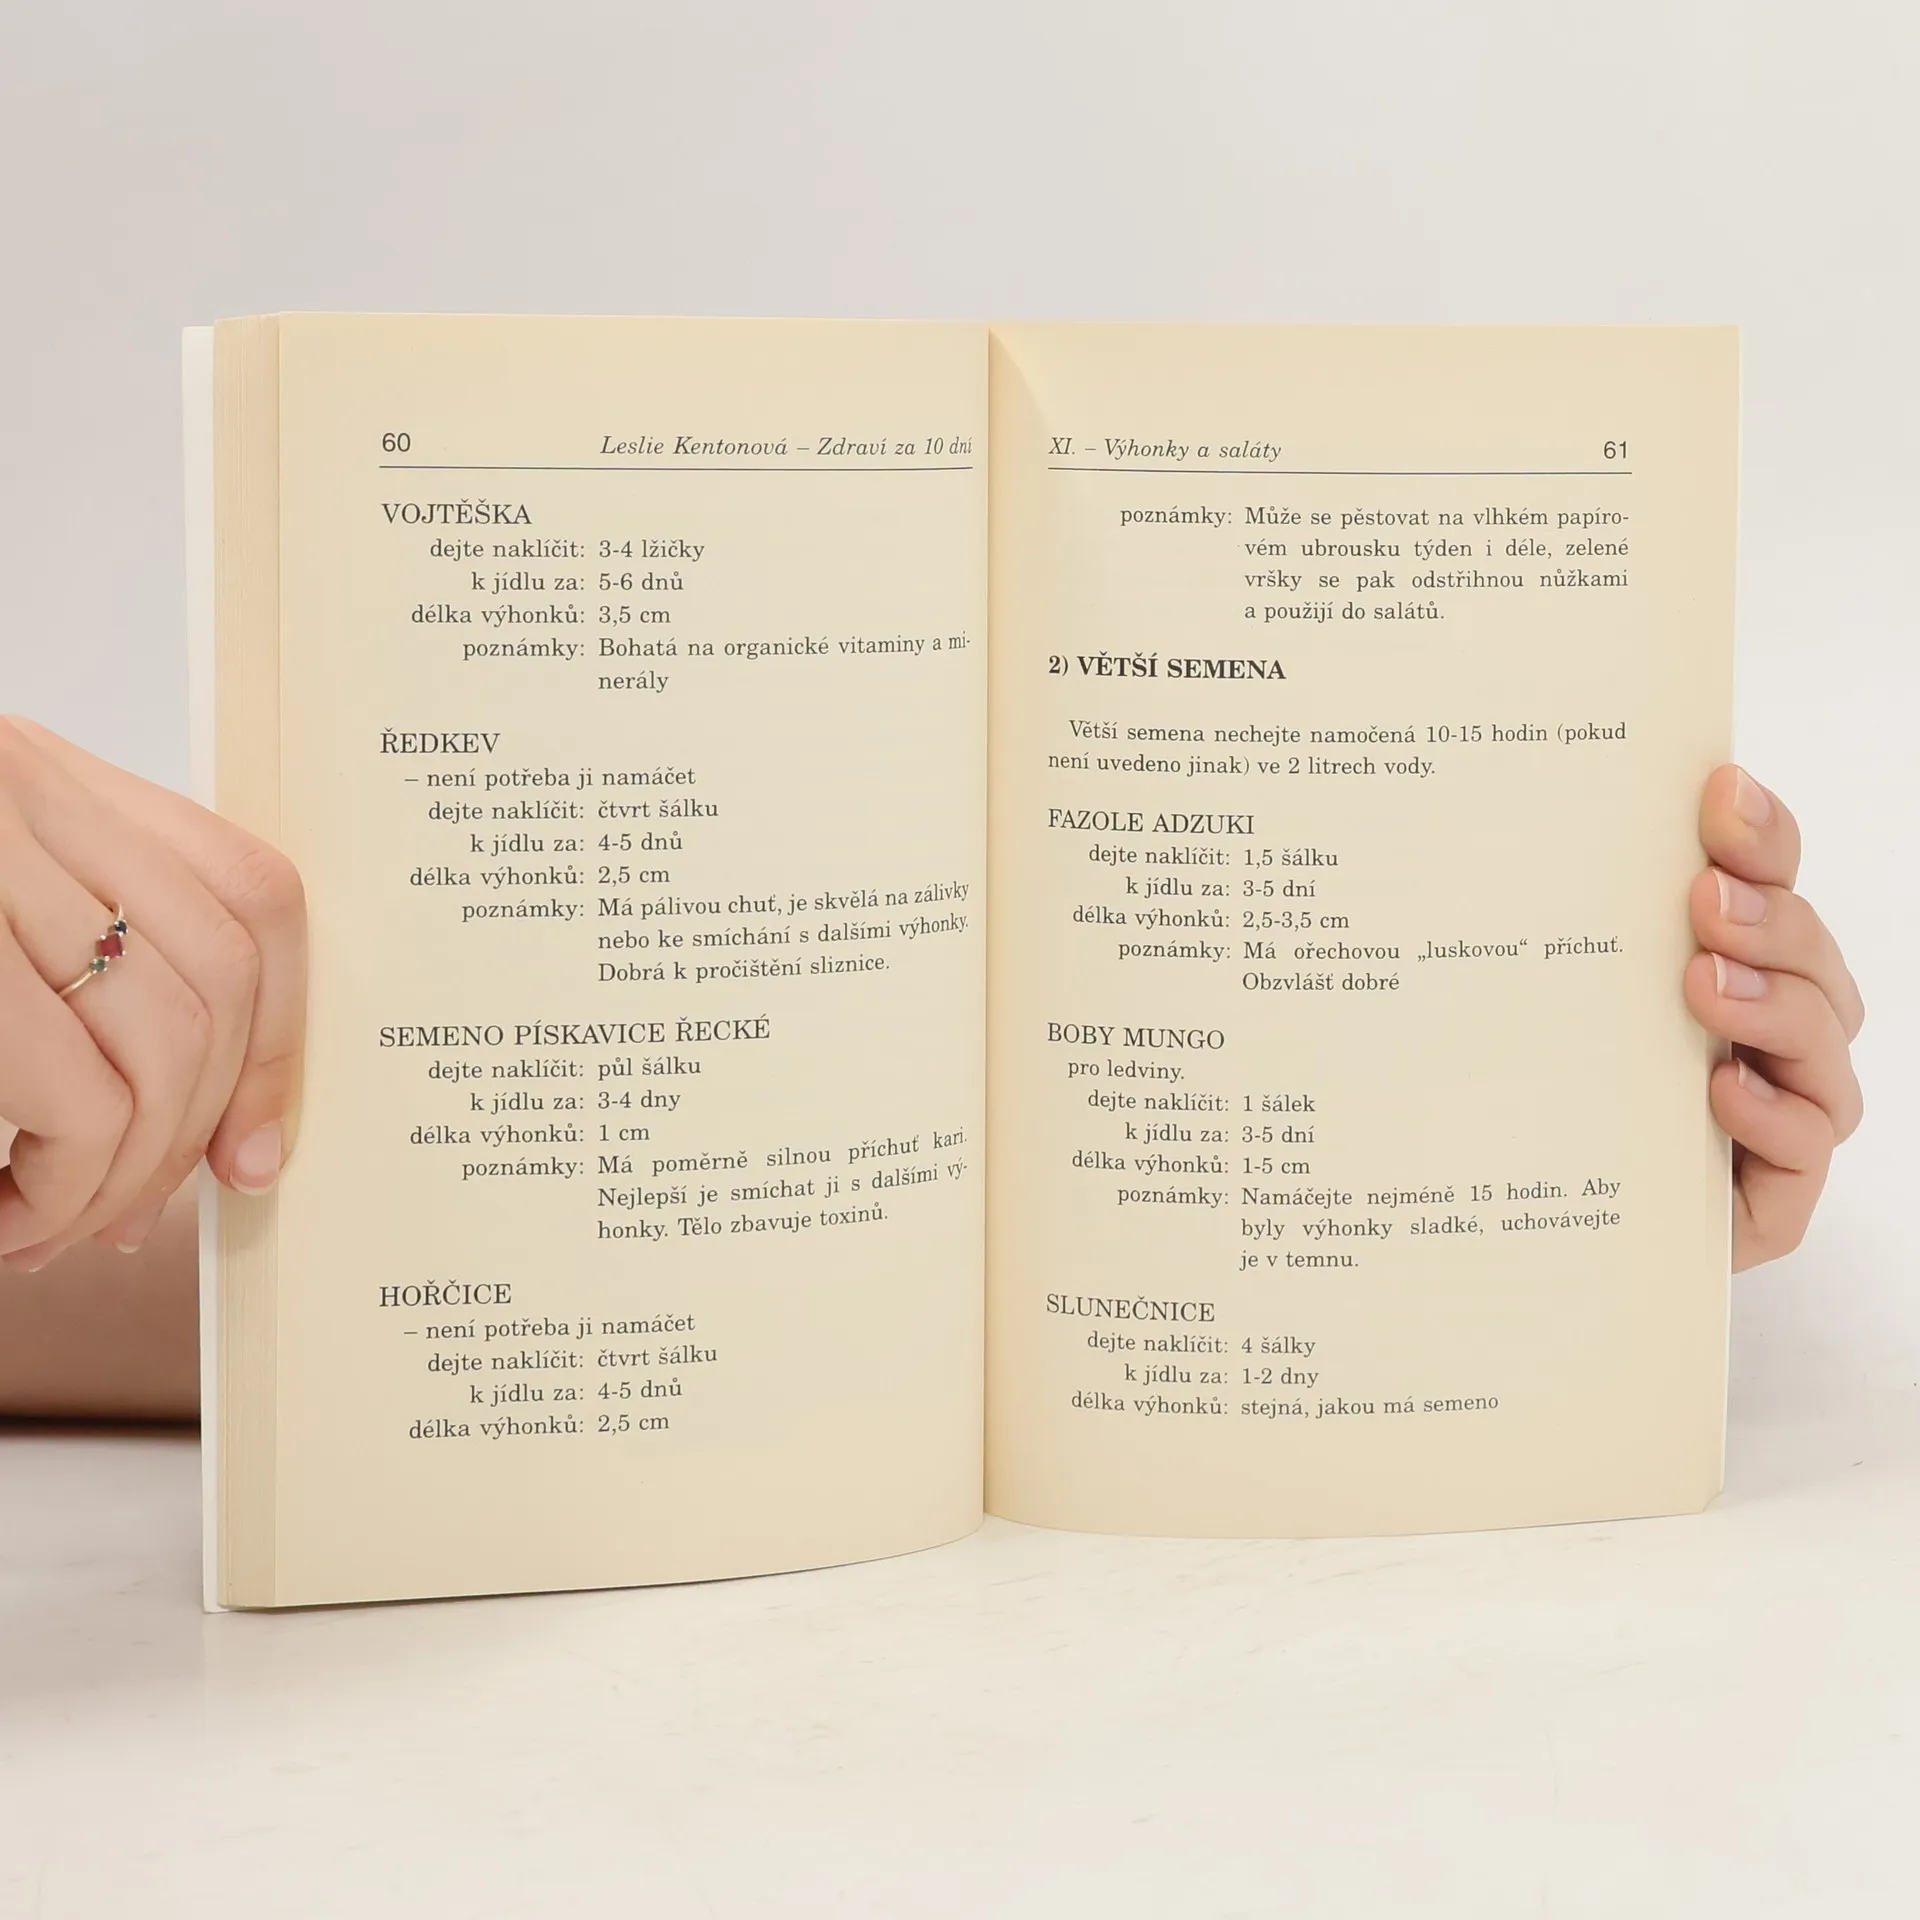 60 Leslie Kentonová – Zdraví za 10 dní
VOJTĚŠKA
dejte naklíčit: 3-4 lžičky
k jídlu za: 5-6 dnů
délka výhonků: 3,5 cm
poznámky: Bohatá na organické vitaminy a mi-
nerály
ŘEDKEV
– není potřeba ji namáčet
dejte naklíčit: čtvrt šálku
k jídlu za: 4-5 dnů
délka výhonků: 2,5 cm
poznámky: Má pálivou chuť, je skvělá na zálivky
nebo ke smíchání s dalšími výhonky.
Dobrá k pročištění sliznice.
SEMENO PÍSKAVICE ŘECKÉ
dejte naklíčit: půl šálku
k jídlu za: 3-4 dny
délka výhonků: 1 cm
poznámky: Má poměrně silnou příchuť kari.
Nejlepší je smíchat ji s dalšími vý-
honky. Tělo zbavuje toxinů.
HOŘČICE
– není potřeba ji namáčet
dejte naklíčit: čtvrt šálku
k jídlu za: 4-5 dnů
délka výhonků: 2,5 cm
XI. – Výhonky a saláty 61
poznámky: Může se pěstovat na vlhkém papíro-
vém ubrousku týden i déle, zelené
vršky se pak odstřihnou nůžkami
a použijí do salátů.
2) VĚTŠÍ SEMENA
Větší semena nechejte namočená 10-15 hodin (pokud
není uvedeno jinak) ve 2 litrech vody.
FAZOLE ADZUKI
dejte naklíčit: 1,5 šálku
k jídlu za: 3-5 dní
délka výhonků: 2,5-3,5 cm
poznámky: Má ořechovou „luskovou“ příchuť.
Obzvlášť dobré
BOBY MUNGO
pro ledviny.
dejte naklíčit: 1 šálek
k jídlu za: 3-5 dní
délka výhonků: 1-5 cm
poznámky: Namáčejte nejméně 15 hodin. Aby
byly výhonky sladké, uchovávejte
je v temnu.
SLUNEČNICE
dejte naklíčit: 4 šálky
k jídlu za: 1-2 dny
délka výhonků: stejná, jakou má semeno